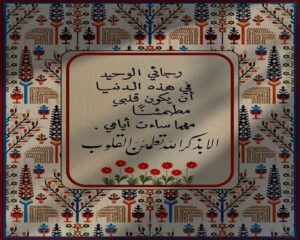 رجائي الوحيد
في هذه الدنيا
أن يكون قلبي
مطمئنًا
مهما ساءت أيامي .
الا بذكر الله تطمئن القلوب